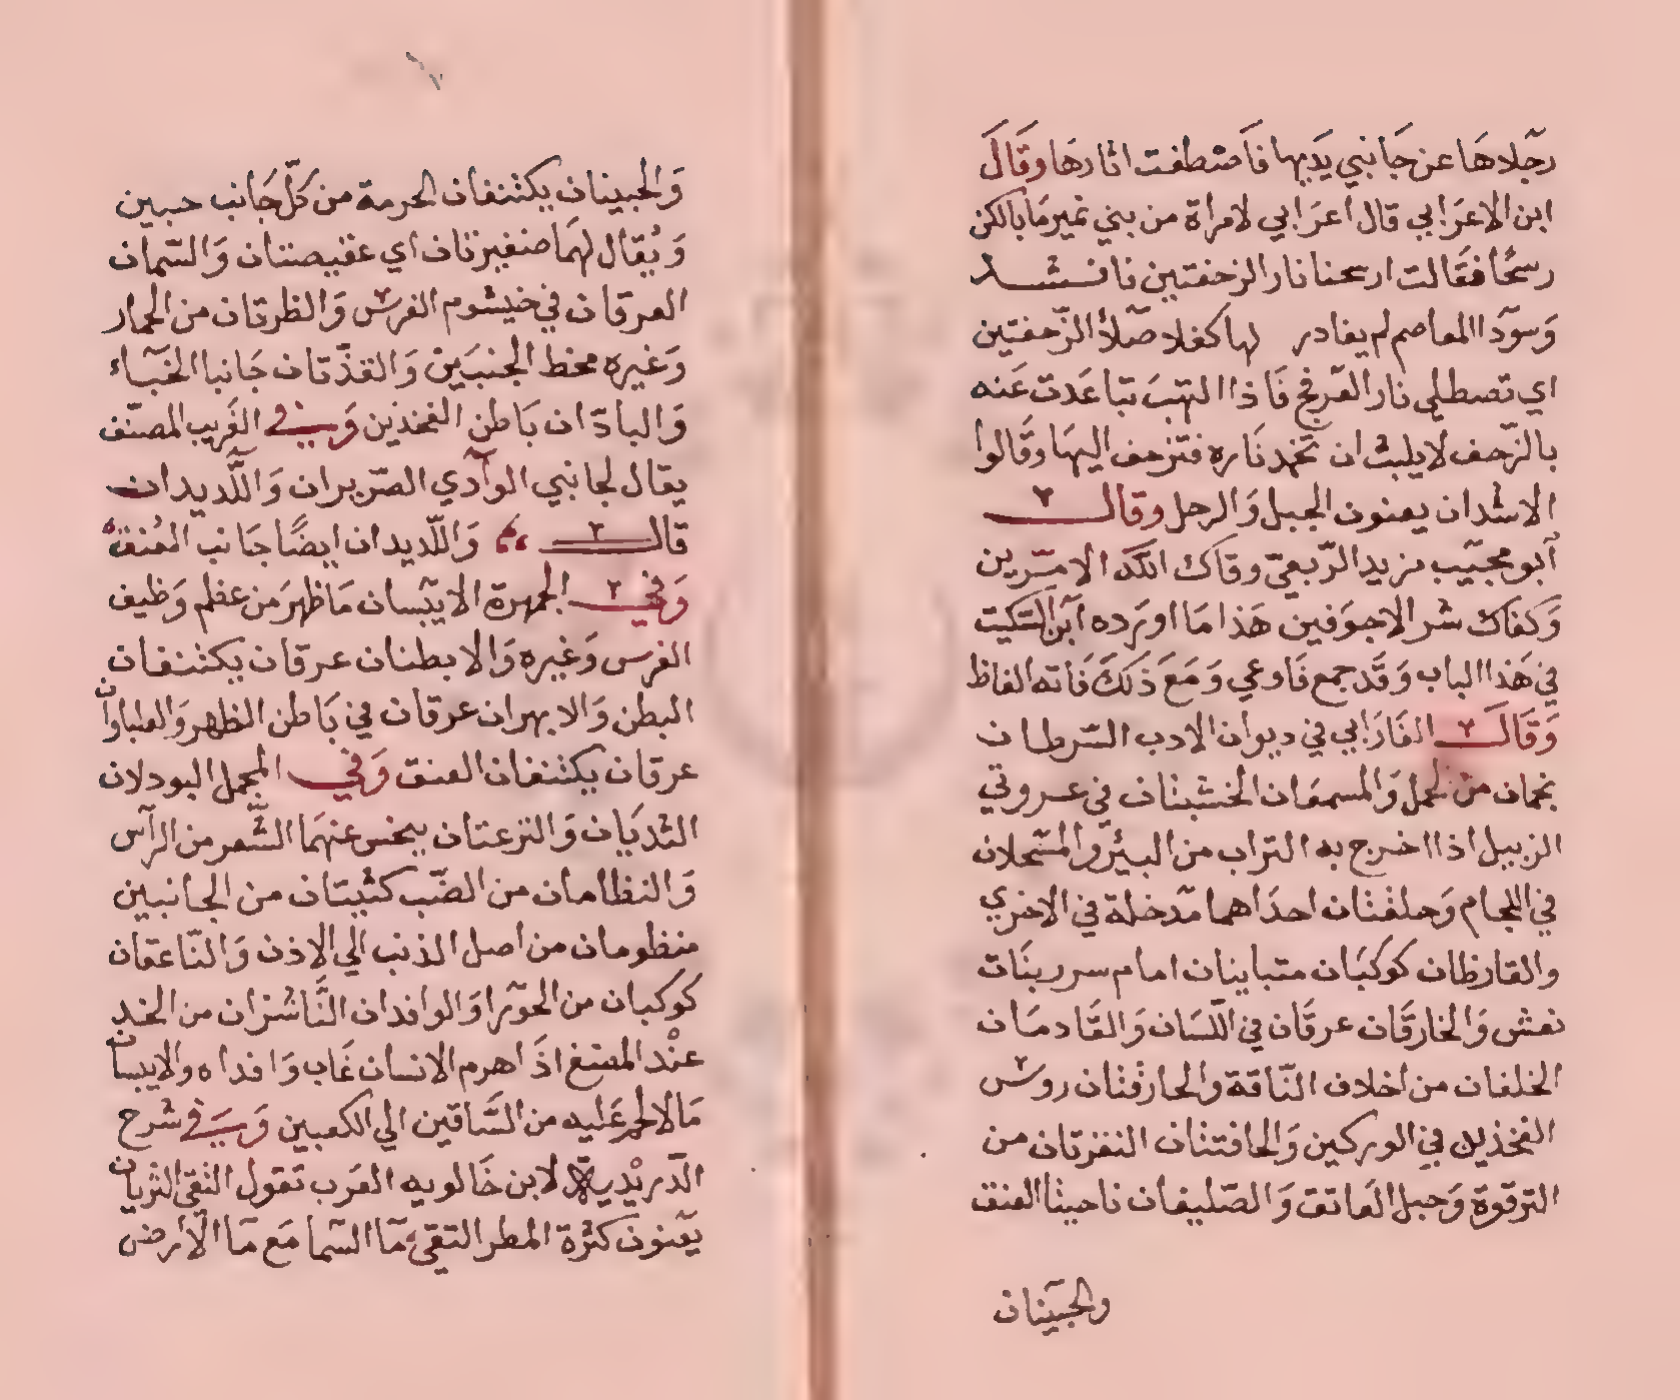 رجلاها عن جانبي يديها فاصطفت اثارها وقال
ابن الاعرابي قال اعرابي لامراة من بني نمير ما بالكن
رسحا فقالت ارسحنا نار الزحفتين فانشد
وسودا المعاصم لم يغادر لها كفلا صلاء الزحفتين
اي تصطلي نار العرفج فاذا التهب تباعدت عنه
بالزحف لا يلبث ان تخمد ناره فتزحف اليها وقالوا
الاشدان يعنون الجبل والرحل وقال
ابو مجيب مزيد الربعي وقاك الله الامرين
وكفاك شر الاجوفين هذا ما اورده ابن السكيت
في هذا الباب وقد جمع فاوعي ومع ذلك فاته الفاظ
وقال الفارابي في ديوان الادب الشرطان
نجمان من الحمل والمسمعان الخشبتان في عروتي
الزبيل اذا اخرج به التراب من البئر والمسحلان
في اللجام وحلقتان احداهما مدخلة في الاخري
والقارظان كوكبان متباينان امام سرير بنات
نعش والخارقان عرقان في اللسان والقادمان
الخلفان من اخلاف الناقة والحارقتان روس
الفخذين في الوركين والحاقنتان النقرتان من
الترقوة وحبل العاتق والصليفان ناحيتا العنق
والجبينان
والجبينان يكتنفان الجبهة من كل جانب جبين
ويقال لهما ضفيرتان اي عقيصتان والسمان
العرقان في خيشوم الفرس والطرتان من الحمار
وغيره مخط الجنبين والقذتان جانبا الحياء
والبادان باطن الفخذين وفي الغريب المصنف
يقال لجانبي الوادي الضريران واللديدان
قال واللديدان ايضا جانب العنق
وفي الجمهرة الايبسان ما ظهر من عظم وظيف
الفرس وغيره والابطنان عرقان يكتنفان
البطن والابهران عرقان في باطن الظهر والعلباوان
عرقان يكتنفان العنق وفي المجمل البودلان
الثديان والنزعتان ينحسر عنهما الشعر من الراس
والنظامان من الضب كشيتان من الجانبين
منظومان من اصل الذنب الي الاذن والناعقان
كوكبان من الجوزا والوافدان الناشزان من الخد
عند المضغ اذا هرم الانسان غاب وافداه والايبسان
ما لا لحم عليه من الساقين الي الكعبين وفي شرح
الدريدية لابن خالويه العرب تقول التقي الثريان
يعنون كثرة المطر التقي ما السما مع ما الارض